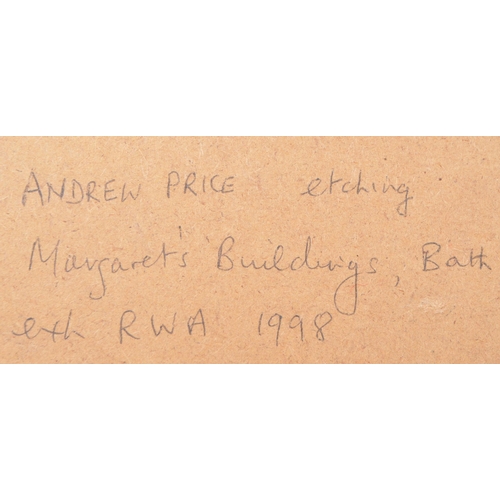 ANDREW PRICE etching
Margaret's Buildings, Bath
exh RWA 1998